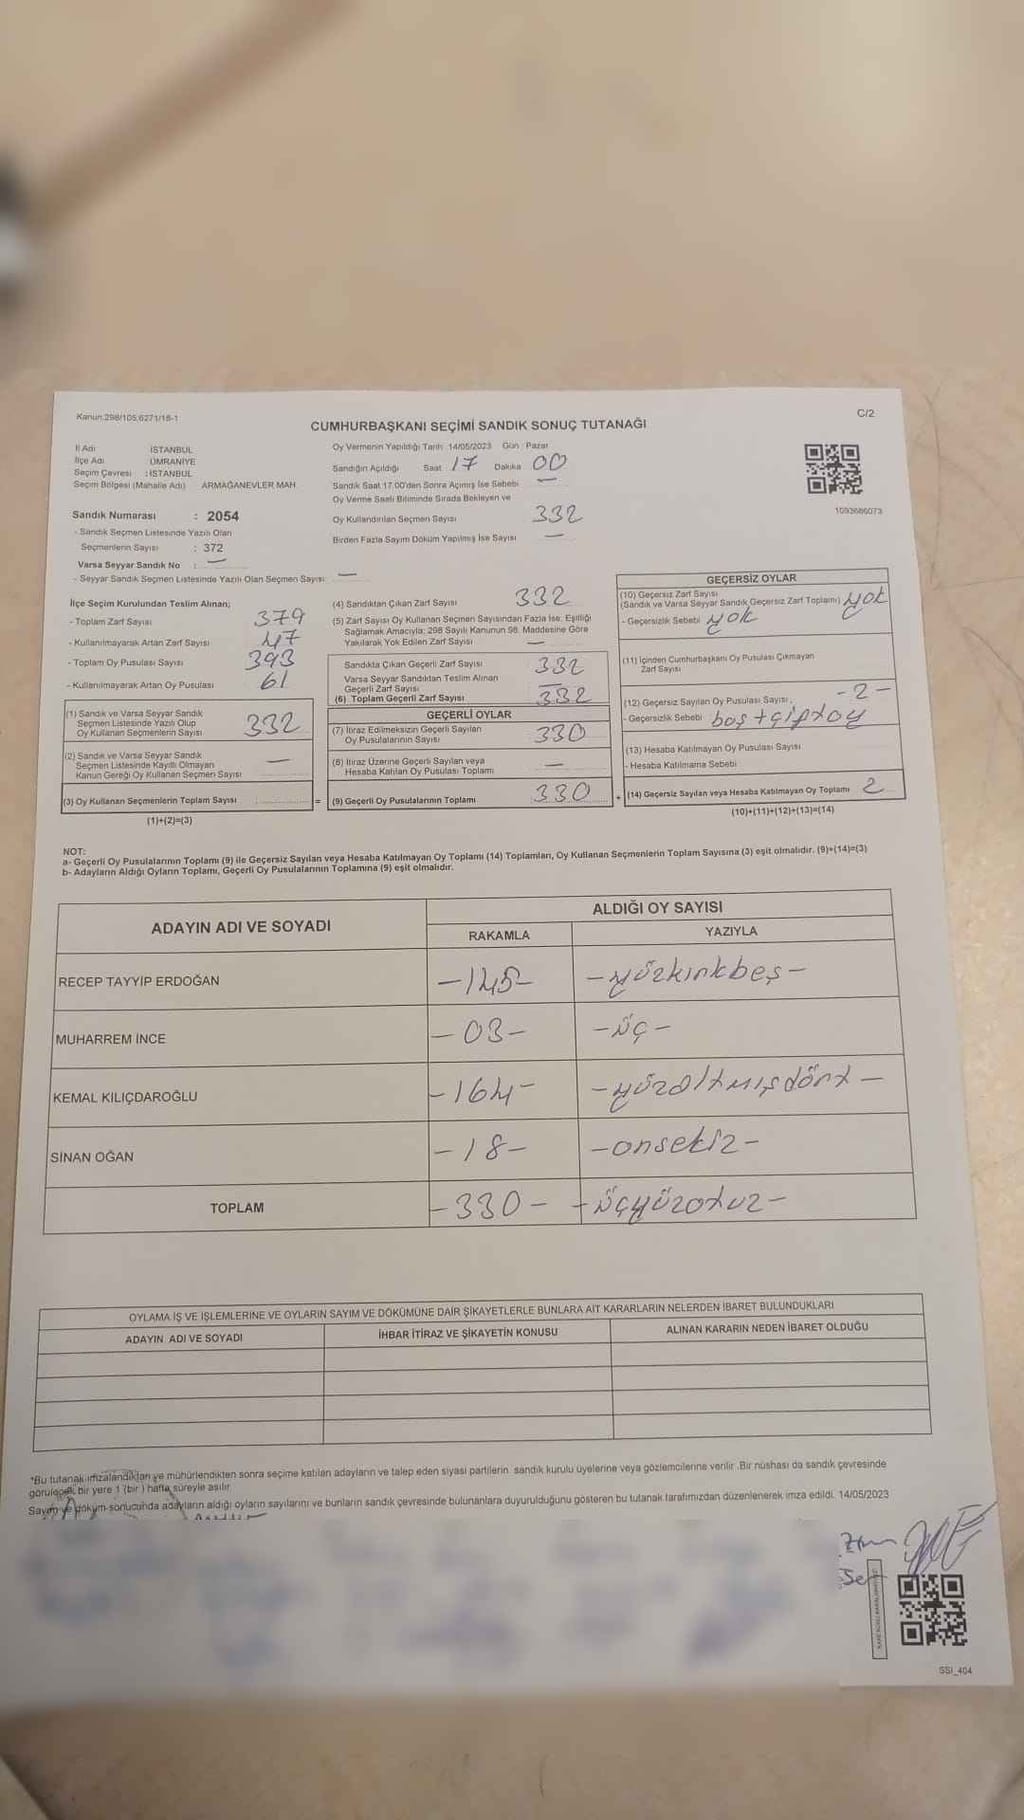 Kanun:298/105,6271/18-1
C/2
CUMHURBAŞKANI SEÇİMİ SANDIK SONUÇ TUTANAĞI
İl Adı İSTANBUL
İlçe Adı ÜMRANİYE
Seçim Çevresi : İSTANBUL
Seçim Bölgesi (Mahalle Adı) ARMAĞANEVLER MAH
Sandık Numarası : 2054
- Sandık Seçmen Listesinde Yazılı Olan
Seçmenlerin Sayısı : 372
Varsa Seyyar Sandık No : —
- Seyyar Sandık Seçmen Listesinde Yazılı Olan Seçmen Sayısı: —
Oy Vermenin Yapıldığı Tarih :14/05/2023 Gün : Pazar
Sandığın Açıldığı Saat 17 Dakika 00
Sandık Saat 17.00'den Sonra Açımış İse Sebebi —
Oy Verme Saati Bitiminde Sırada Bekleyen ve
Oy Kullandırılan Seçmen Sayısı 332
Birden Fazla Sayım Döküm Yapılmış İse Sayısı —
1093686073
İlçe Seçim Kurulundan Teslim Alınan;
- Toplam Zarf Sayısı 379
- Kullanılmayarak Artan Zarf Sayısı 47
- Toplam Oy Pusulası Sayısı 393
- Kullanılmayarak Artan Oy Pusulası 61
(1) Sandık ve Varsa Seyyar Sandık
Seçmen Listesinde Yazılı Olup
Oy Kullanan Seçmenlerin Sayısı 332
(2) Sandık ve Varsa Seyyar Sandık
Seçmen Listesinde Kayıtlı Olmayan
Kanun Gereği Oy Kullanan Seçmen Sayısı —
(3) Oy Kullanan Seçmenlerin Toplam Sayısı =
(1)+(2)=(3)
(4) Sandıktan Çıkan Zarf Sayısı 332
(5) Zarf Sayısı Oy Kullanan Seçmen Sayısından Fazla İse, Eşitliği
Sağlamak Amacıyla; 298 Sayılı Kanunun 98. Maddesine Göre
Yakılarak Yok Edilen Zarf Sayısı —
Sandıkta Çıkan Geçerli Zarf Sayısı 332
Varsa Seyyar Sandıktan Teslim Alınan
Geçerli Zarf Sayısı —
(6) Toplam Geçerli Zarf Sayısı 332
GEÇERLİ OYLAR
(7) İtiraz Edilmeksizin Geçerli Sayılan
Oy Pusulalarının Sayısı 330
(8) İtiraz Üzerine Geçerli Sayılan veya
Hesaba Katılan Oy Pusulası Toplamı —
(9) Geçerli Oy Pusulalarının Toplamı 330 +
GEÇERSİZ OYLAR
(10) Geçersiz Zarf Sayısı
(Sandık ve Varsa Seyyar Sandık Geçersiz Zarf Toplamı) yok
- Geçersizlik Sebebi yok
(11) İçinden Cumhurbaşkanı Oy Pusulası Çıkmayan
Zarf Sayısı
(12) Geçersiz Sayılan Oy Pusulası Sayısı - 2 -
- Geçersizlik Sebebi boş + çift oy
(13) Hesaba Katılmayan Oy Pusulası Sayısı
- Hesaba Katılmama Sebebi
(14) Geçersiz Sayılan veya Hesaba Katılmayan Oy Toplamı 2
(10)+(11)+(12)+(13)=(14)
NOT:
a- Geçerli Oy Pusulalarının Toplamı (9) ile Geçersiz Sayılan veya Hesaba Katılmayan Oy Toplamı (14) Toplamları, Oy Kullanan Seçmenlerin Toplam Sayısına (3) eşit olmalıdır. (9)+(14)=(3)
b- Adayların Aldığı Oyların Toplamı, Geçerli Oy Pusulalarının Toplamına (9) eşit olmalıdır.
ADAYIN ADI VE SOYADI ALDIĞI OY SAYISI
RAKAMLA YAZIYLA
RECEP TAYYİP ERDOĞAN -145- -yüzkırkbeş-
MUHARREM İNCE -03- -üç-
KEMAL KILIÇDAROĞLU -164- -yüzaltmışdört-
SİNAN OĞAN -18- -onsekiz-
TOPLAM -330- -üçyüzotuz-
OYLAMA İŞ VE İŞLEMLERİNE VE OYLARIN SAYIM VE DÖKÜMÜNE DAİR ŞİKAYETLERLE BUNLARA AİT KARARLARIN NELERDEN İBARET BULUNDUKLARI
ADAYIN ADI VE SOYADI İHBAR İTİRAZ VE ŞİKAYETİN KONUSU ALINAN KARARIN NEDEN İBARET OLDUĞU
*Bu tutanak imzalandıktan ve mühürlendikten sonra seçime katılan adayların ve talep eden siyasi partilerin sandık kurulu üyelerine veya gözlemcilerine verilir. Bir nüshası da sandık çevresinde
görülecek bir yere 1 (bir) hafta süreyle asılır.
Sayım ve döküm sonucunda adayların aldığı oyların sayılarını ve bunların sandık çevresinde bulunanlara duyurulduğunu gösteren bu tutanak tarafımızdan düzenlenerek imza edildi. 14/05/2023
SSI_404